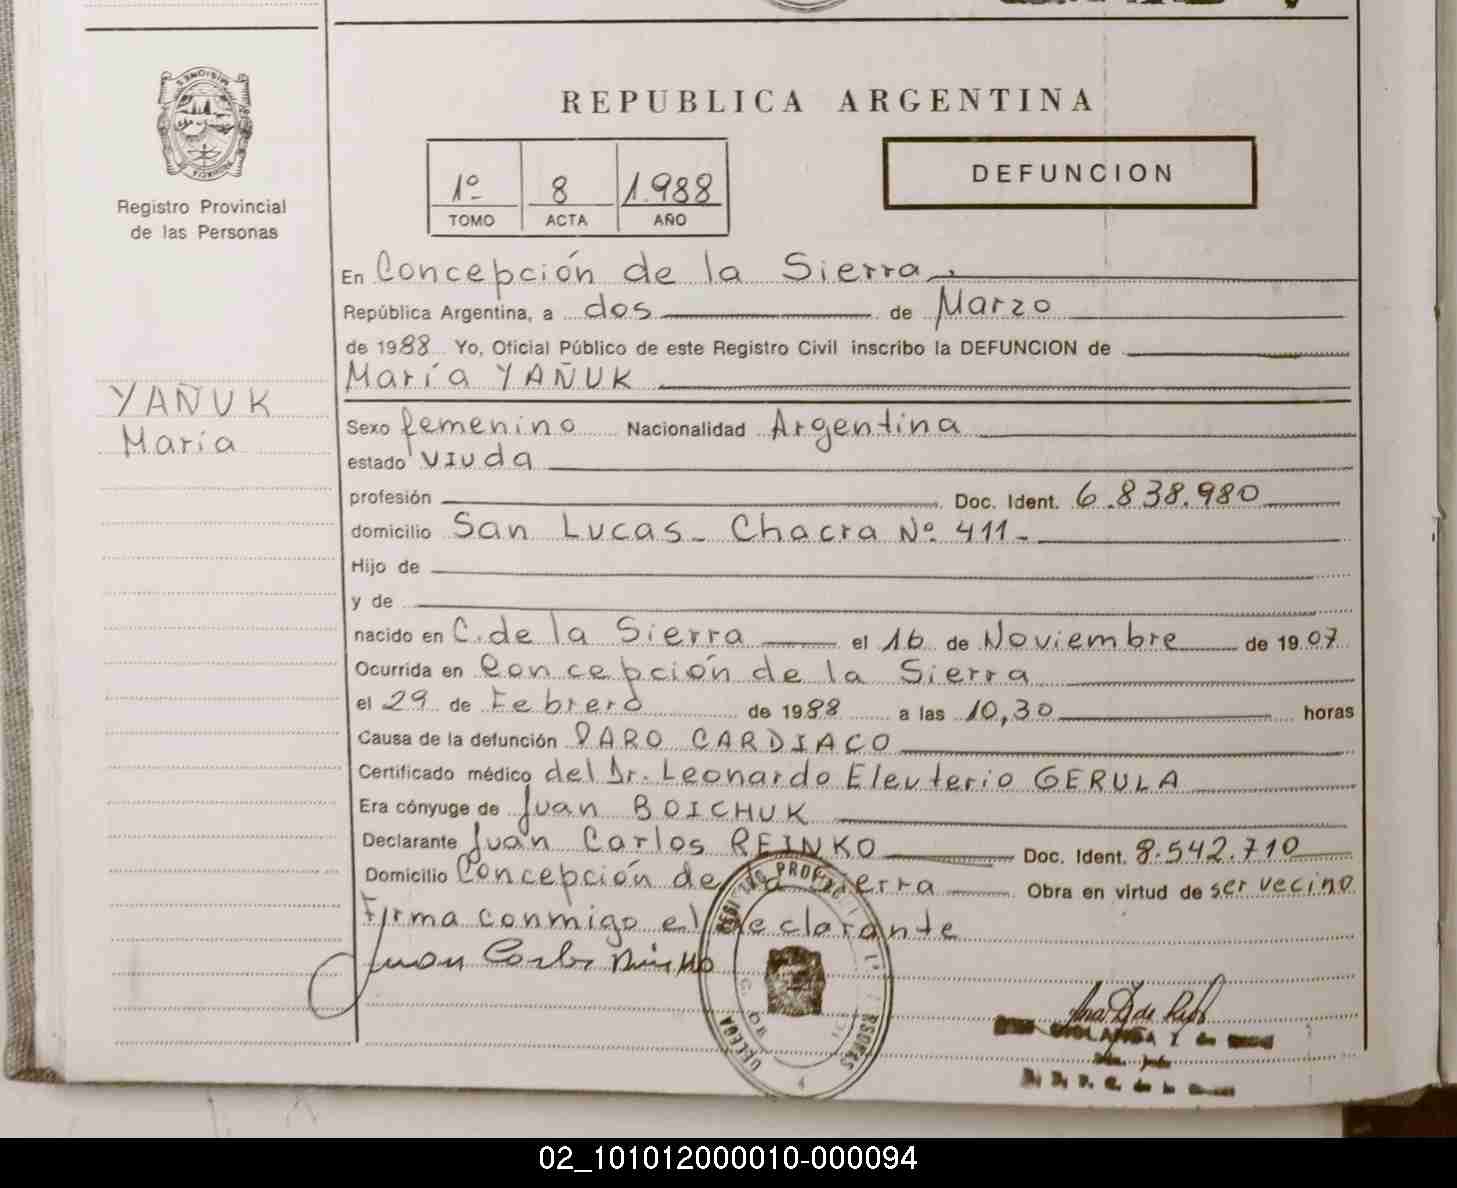 MISIONES
PROVINCIA
Registro Provincial
de las Personas
YAÑUK
María
REPUBLICA ARGENTINA
1º 8 1.988
TOMO ACTA AÑO
DEFUNCION
En Concepción de la Sierra
República Argentina, a dos de Marzo
de 1988 Yo, Oficial Público de este Registro Civil inscribo la DEFUNCION de
María YAÑUK
Sexo femenino Nacionalidad Argentina
estado viuda
profesión Doc. Ident. 6.838.980
domicilio San Lucas - Chacra Nº 411-
Hijo de
y de
nacido en C. de la Sierra el 16 de Noviembre de 1907
Ocurrida en Concepción de la Sierra
el 29 de Febrero de 1988 a las 10,30 horas
Causa de la defunción PARO CARDIACO
Certificado médico del Dr. Leonardo Eleuterio GERULA
Era cónyuge de Juan BOICHUK
Declarante Juan Carlos REINKO Doc. Ident. 8.542.710
Domicilio Concepción de la Sierra Obra en virtud de ser vecino
Firma conmigo el declarante
Juan Carlos
02_101012000010-000094